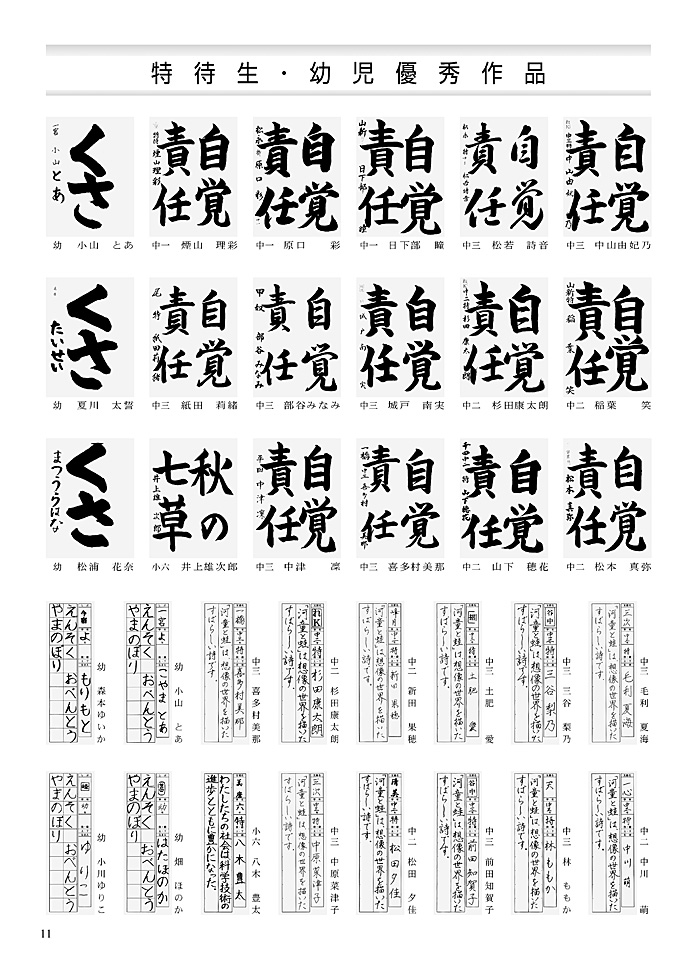 特待生・幼児優秀作品
自覚責任
中三 中山由妃乃
自覚責任
中三 松若 詩音
自覚責任
中一 日下部 瞳
自覚責任
中一 原口 彩
自覚責任
中一 煙山 理彩
くさ
一宮 小山とあ
幼 小山 とあ
自覚責任
中二 稲葉 笑
自覚責任
中二 杉田康太朗
自覚責任
中三 城戸 南実
自覚責任
中三 部谷みなみ
自覚責任
中三 紙田 莉緒
くさ
たいせい
幼 夏川 太誓
自覚責任
中二 松本 真弥
自覚責任
中二 山下 穂花
自覚責任
中三 喜多村美那
自覚責任
中三 中津 凛
秋の七草
井上雄次郎
小六 井上雄次郎
くさ
まつうらはな
幼 松浦 花奈
三次 中三 特 毛利夏海
「河童と蛙」は、想像の世界を描いた
すばらしい詩です。
中三 毛利 夏海
谷中 中三 特 三谷梨乃
「河童と蛙」は、想像の世界を描いた
すばらしい詩です。
中三 三谷 梨乃
中三 特 土肥愛
「河童と蛙」は、想像の世界を描いた
すばらしい詩です。
中三 土肥 愛
中二 特 新田果穂
「河童と蛙」は、想像の世界を描いた
すばらしい詩です。
中二 新田 果穂
中二 特 杉田康太朗
「河童と蛙」は、想像の世界を描いた
すばらしい詩です。
中二 杉田康太朗
一橋 中三 特 喜多村美那
「河童と蛙」は、想像の世界を描いた
すばらしい詩です。
中三 喜多村美那
一宮 よ こやまとあ
えんそく おべんとう
やまのぼり
幼 小山 とあ
よ もりもと
えんそく おべんとう
やまのぼり
幼 森本ゆいか
一心 中二 特 中川萌
「河童と蛙」は、想像の世界を描いた
すばらしい詩です。
中二 中川 萌
天 中三 特 林ももか
「河童と蛙」は、想像の世界を描いた
すばらしい詩です。
中三 林 ももか
中三 特 前田知賀子
「河童と蛙」は、想像の世界を描いた
すばらしい詩です。
中三 前田知賀子
中二 特 松田夕佳
「河童と蛙」は、想像の世界を描いた
すばらしい詩です。
中二 松田 夕佳
三次 中三 特 中原菜津子
「河童と蛙」は、想像の世界を描いた
すばらしい詩です。
中三 中原菜津子
六 特 八木豊太
わたしたちの社会は科学技術の
進歩とともに豊かになった。
小六 八木 豊太
幼 はたほのか
えんそく おべんとう
やまのぼり
幼 畑 ほのか
幼 ゆりこ
えんそく おべんとう
やまのぼり
幼 小川ゆりこ
11